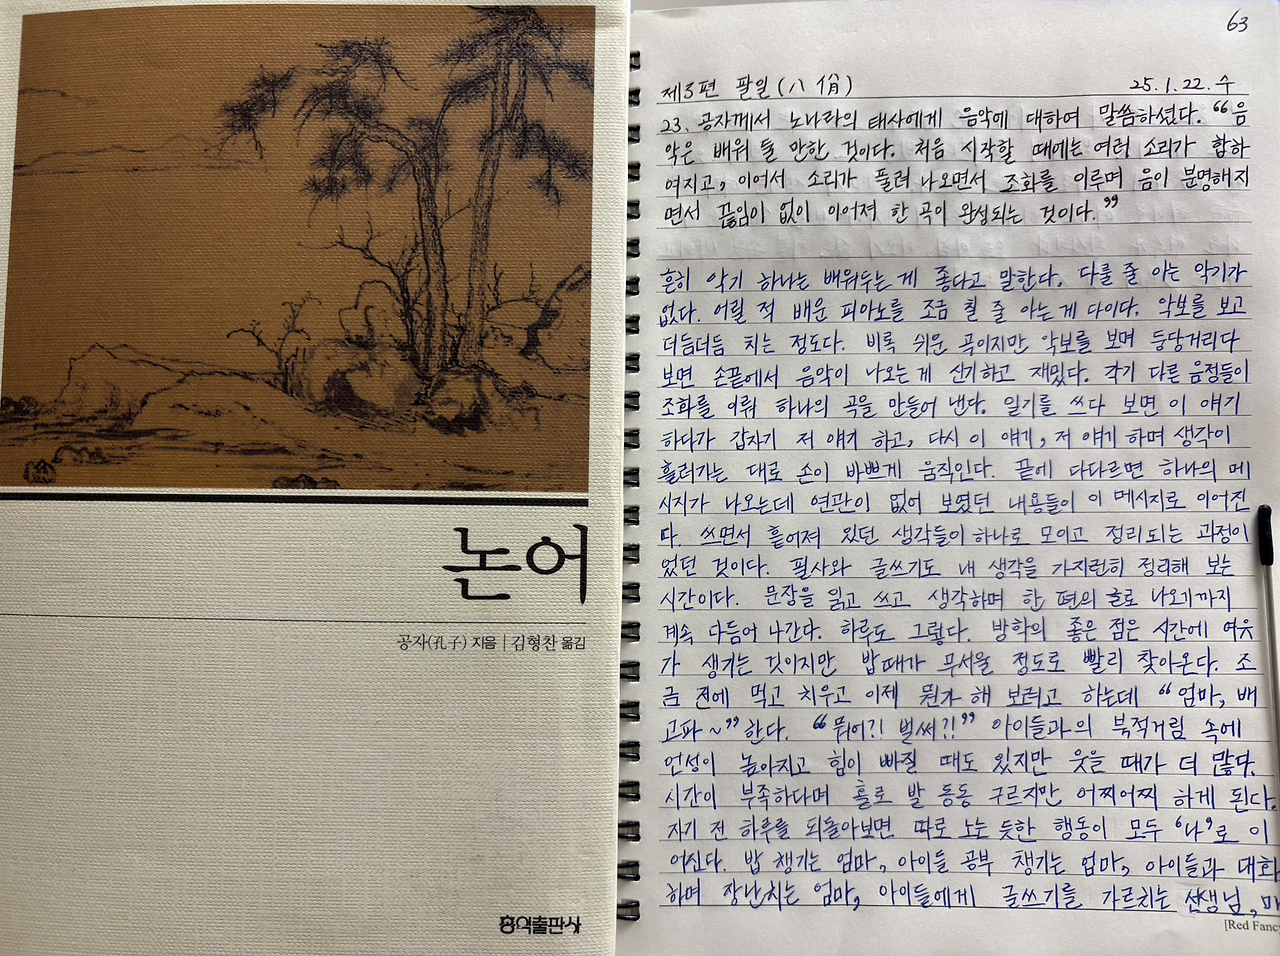 논어
공자(孔子) 지음 | 김형찬 옮김
홍익출판사
63
제3편 팔일(八佾) 25.1.22.수
23. 공자께서 노나라의 태사에게 음악에 대하여 말씀하셨다. “음
악은 배워 둘 만한 것이다. 처음 시작할 때에는 여러 소리가 합하
여지고, 이어서 소리가 풀려 나오면서 조화를 이루며 음이 분명해지
면서 끊임이 없이 이어져 한 곡이 완성되는 것이다.”
흔히 악기 하나는 배워두는 게 좋다고 말한다. 다룰 줄 아는 악기가
없다. 어릴 적 배운 피아노를 조금 칠 줄 아는 게 다이다. 악보를 보고
더듬더듬 치는 정도다. 비록 쉬운 곡이지만 악보를 보며 둥당거리다
보면 손끝에서 음악이 나오는 게 신기하고 재밌다. 각기 다른 음정들이
조화를 이뤄 하나의 곡을 만들어 낸다. 일기를 쓰다 보면 이 얘기
하다가 갑자기 저 얘기 하고, 다시 이 얘기, 저 얘기 하며 생각이
흘러가는 대로 손이 바쁘게 움직인다. 끝에 다다르면 하나의 메
시지가 나오는데 연관이 없어 보였던 내용들이 이 메시지로 이어진
다. 쓰면서 흩어져 있던 생각들이 하나로 모이고 정리되는 과정이
었던 것이다. 필사와 글쓰기도 내 생각을 가지런히 정리해 보는
시간이다. 문장을 읽고 쓰고 생각하며 한 편의 글로 나오기까지
계속 다듬어 나간다. 하루도 그렇다. 방학의 좋은 점은 시간에 여유
가 생기는 것이지만 밥때가 무서울 정도로 빨리 찾아온다. 조
금 전에 먹고 치우고 이제 뭔가 해 보려고 하는데 “엄마, 배
고파~” 한다. “뭐어?! 벌써?!” 아이들과의 북적거림 속에
언성이 높아지고 힘이 빠질 때도 있지만 웃을 때가 더 많다.
시간이 부족하다며 홀로 발 동동 구르지만 어찌어찌 하게 된다.
자기 전 하루를 되돌아보면 따로 노는 듯한 행동이 모두 ‘나’로 이
어진다. 밥 챙기는 엄마, 아이들 공부 챙기는 엄마, 아이들과 대화
하며 장난치는 엄마, 아이들에게 글쓰기를 가르치는 선생님, 마
[Red Fancy